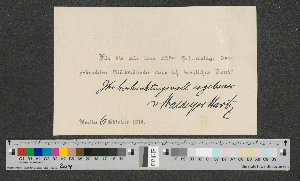 Für die mir zum 80sten Geburtstag dar-
gebrachten Glückwünsche sage ich herzlichen Dank!
Ihr hochachtungsvoll ergebener
v. Waldeyer-Hartz
Berlin, Oktober 1916.